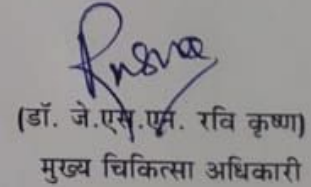 (डॉ. जे.एस.एन. रवि कृष्ण)
मुख्य चिकित्सा अधिकारी